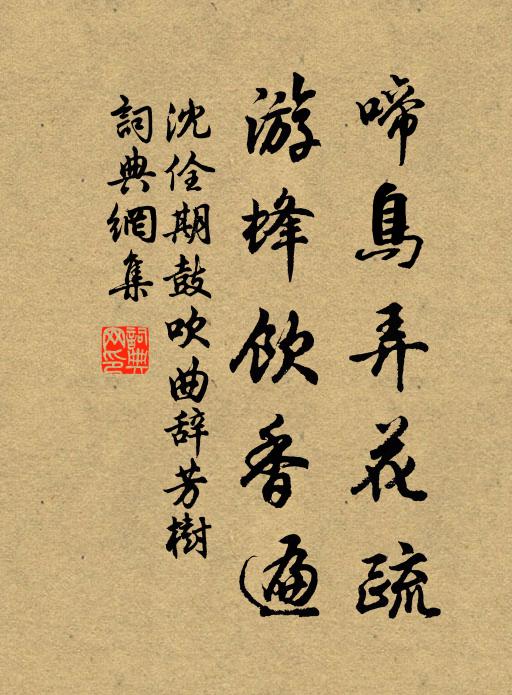 啼鳥弄花疏
游蜂飲香遍
沈佺期鼓吹曲辞芳樹
詞典網集
詞典网印